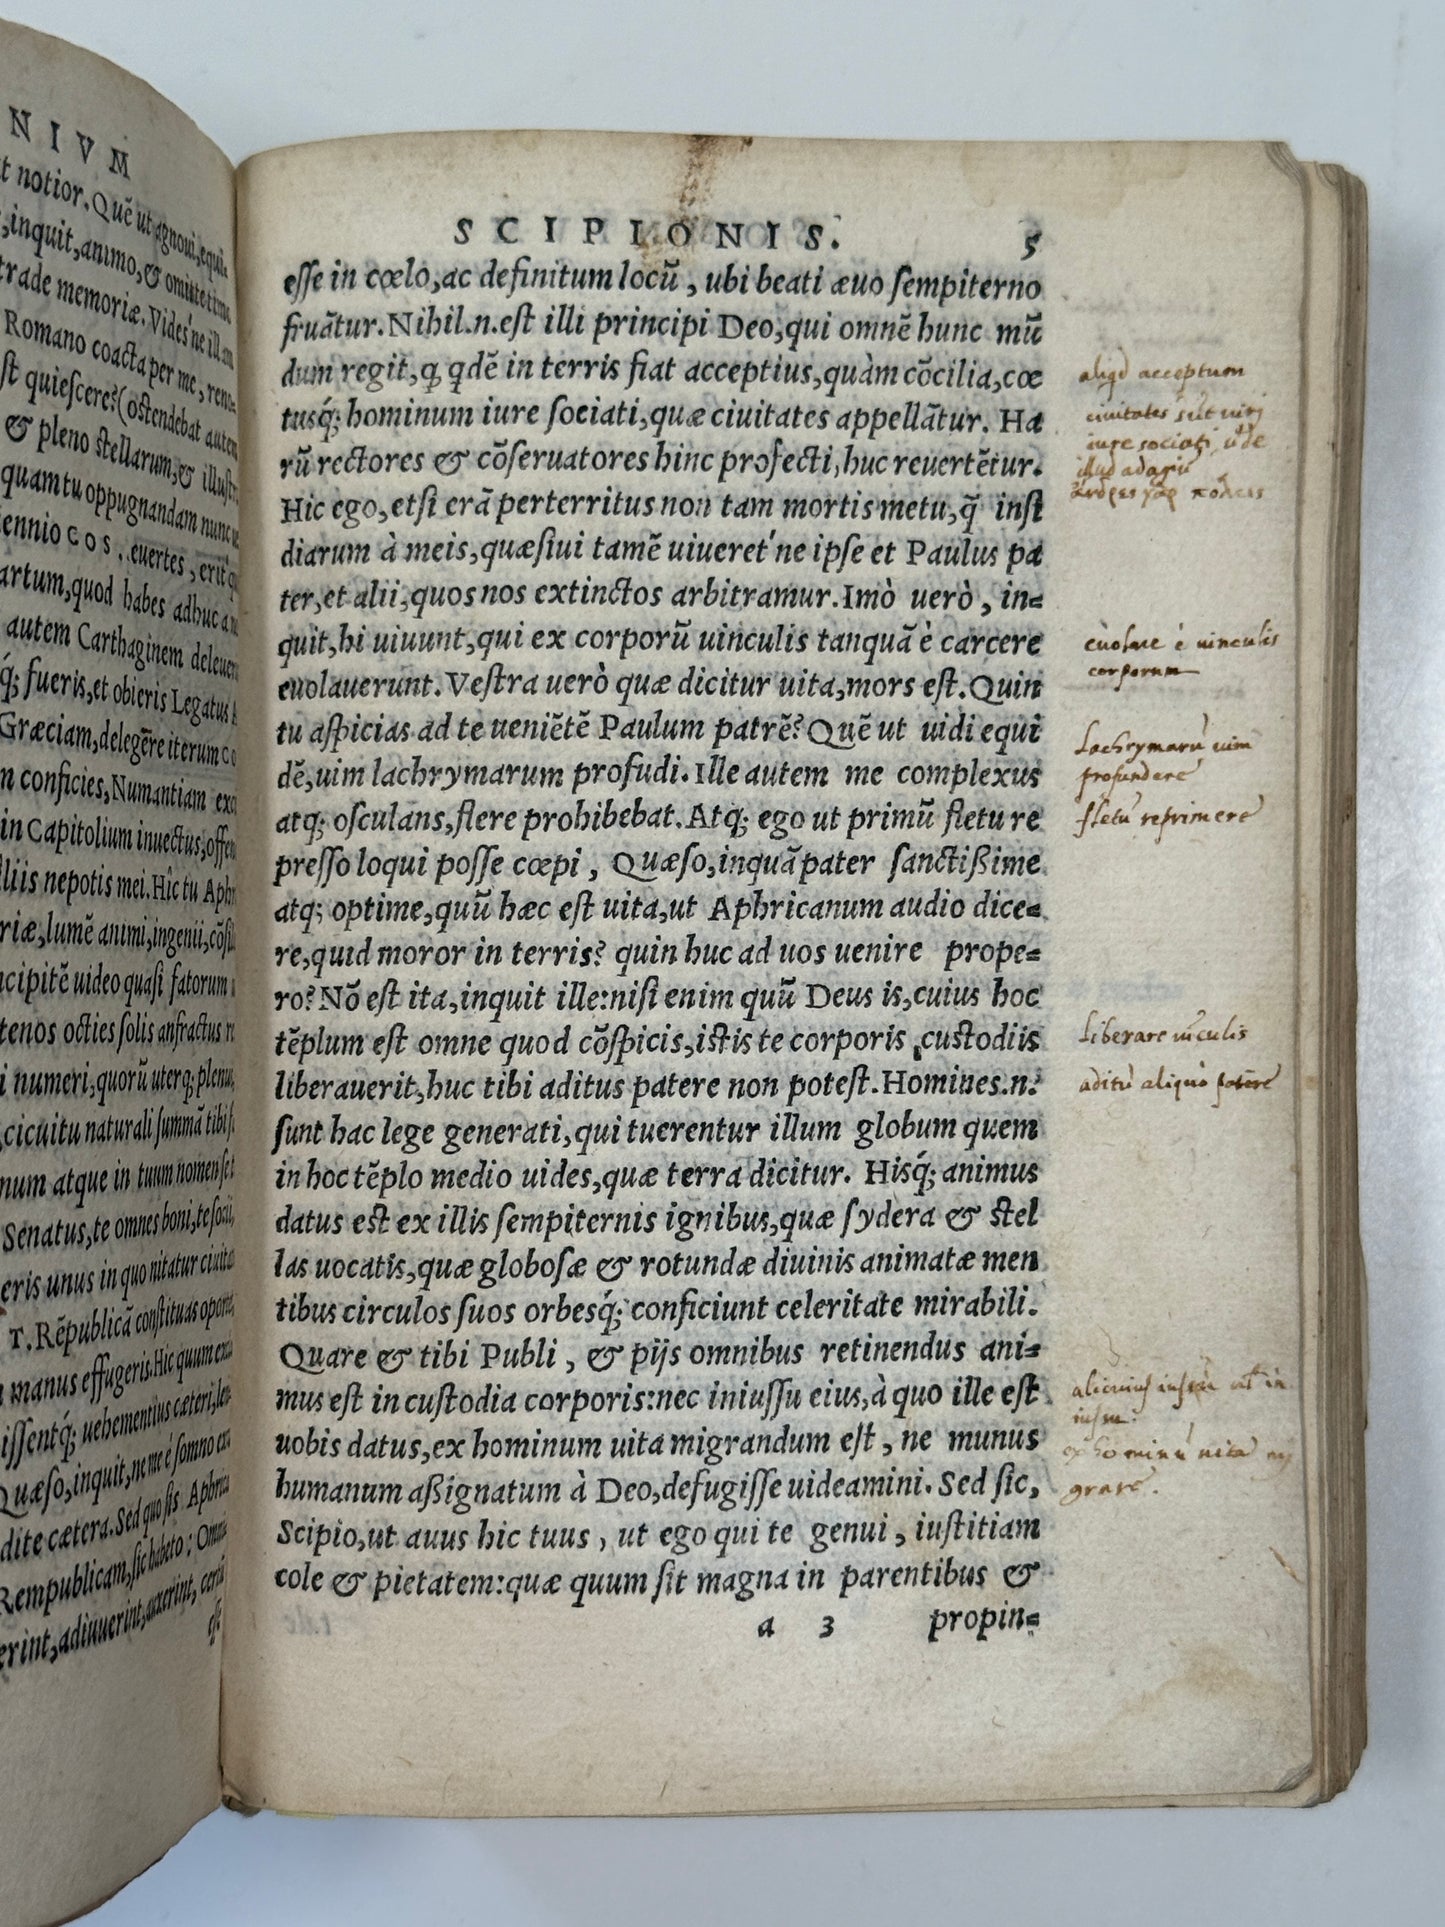 NIVM
t notior. Quẽ ut agnoui, equi-
, inquit, animo, & omitte time
trade memoriæ. Vides'ne illam
Romano coacta per me, reno-
st quiescere? (ostendebat autem
& pleno stellarum, & illustri
quam tu oppugnandam nunc ue
ennio cos. euertes, erit'q;
artum, quod habes adhuc a no
autem Carthaginem deleueris
q́; fueris, et obieris Legatus
Græciam, deligẽre iterum co
m conficies, Numantiam exci
in Capitolium inuectus, offen
liis nepotis mei. Hîc tu Aphri
riæ, lumẽ animi, ingenii, cõsili
ncipitẽ uideo quasi fatorum
tenos octies solis anfractus re
i numeri, quorũ uterq; plenus
, cicuitu naturali summã tibi f
num atque in tuum nomen se t
Senatus, te omnes boni, te socii,
eris unus in quo nitatur ciuita
T. Rẽpublicã constituas oporte
manus effugeris. Hic quum excla
issentq́; uehementius cæteri, len
Quæso, inquit, ne me è somno exc
dite cætera. Sed quo sis Aphrica
Rempublicam, sic habeto: Omni
erint, adiuuerint, auxerint, certũ
esse
SCIPIONIS. 5
esse in cœlo, ac definitum locũ, ubi beati æuo sempiterno
fruãtur. Nihil.n.est illi principi Deo, qui omnẽ hunc mũ
dum regit, q̧ qdẽ in terris fiat acceptius, quàm cõcilia, cœ
tusq́; hominum iure sociati, quæ ciuitates appellãtur. Ha
rũ rectores & cõseruatores hinc profecti, huc reuertẽtur.
Hic ego, etsi erã perterritus non tam mortis metu, q̃ insi
diarum à meis, quæsiui tamẽ uiueret'ne ipse et Paulus pa
ter, et alii, quos nos extinctos arbitramur. Imò uerò, in=
quit, hi uiuunt, qui ex corporũ uinculis tanquã è carcere
euolauerunt. Vestra uerò quæ dicitur uita, mors est. Quin
tu aspicias ad te ueniẽtẽ Paulum patrẽ? Quẽ ut uidi equi
dẽ, uim lachrymarum profudi. Ille autem me complexus
atq; osculans, flere prohibebat. Atq; ego ut primũ fletu re
presso loqui posse cœpi, Quæso, inquã pater sanctißime
atq; optime, quũ hæc est uita, ut Aphricanum audio dice=
re, quid moror in terris? quin huc ad uos uenire prope=
ro? Nõ est ita, inquit ille: nisi enim quũ Deus is, cuius hoc
tẽplum est omne quod cõspicis, istis te corporis custodiis
liberauerit, huc tibi aditus patere non potest. Homines.n.
sunt hac lege generati, qui tuerentur illum globum quem
in hoc tẽplo medio uides, quæ terra dicitur. Hisq́; animus
datus est ex illis sempiternis ignibus, quæ sydera & stel
las uocatis, quæ globosæ & rotundæ diuinis animatæ men
tibus circulos suos orbesq́; conficiunt celeritate mirabili.
Quare & tibi Publi, & pijs omnibus retinendus ani=
mus est in custodia corporis: nec iniussu eius, à quo ille est
uobis datus, ex hominum uita migrandum est, ne munus
humanum aßignatum à Deo, defugisse uideamini. Sed sic,
Scipio, ut auus hic tuus, ut ego qui te genui, iustitiam
cole & pietatem: quæ quum sit magna in parentibus &
a 3 propin=
aliqd acceptum
ciuitates sũt uiri
iure sociati
illud adagiũ
euolare è uinculis
corporum
Lachrymarũ uim
profundere
fletũ reprimere
Liberare uĩculis
aditũ aliquò patere
alicuius
ex hominũ uita mi
grare.